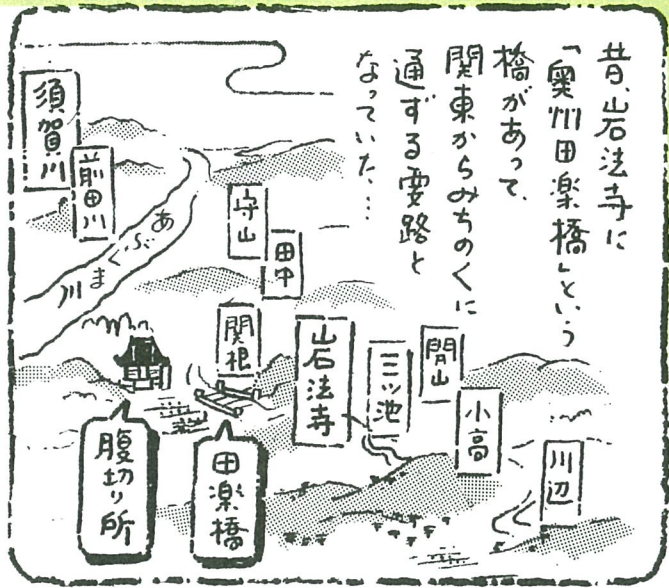 昔、岩法寺に
「奥州田楽橋」という
橋があって、
関東からみちのくに
通ずる要路と
なっていた…
須賀川
前田川
あぶくま川
守山
田中
関根
岩法寺
三ツ池
開山
小高
川辺
田楽橋
腹切り所